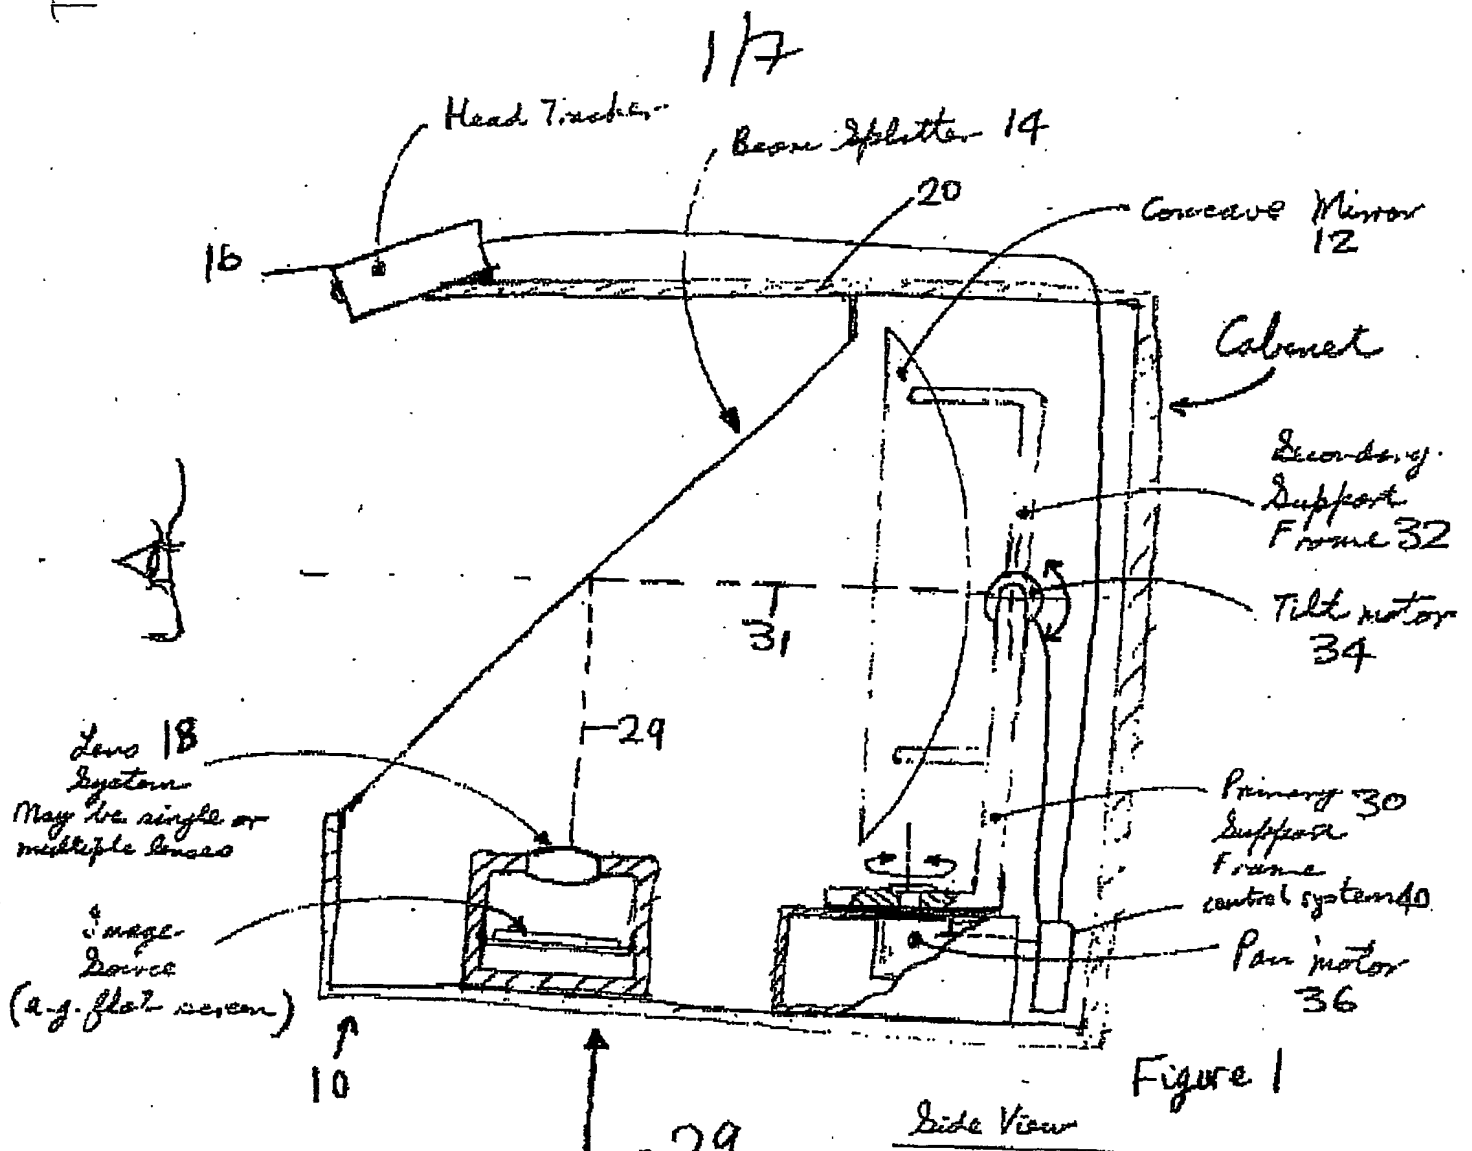 1/7
Head Tracker
Beam Splitter 14
20
Concave Mirror
12
16
Cabinet
Secondary
Support
Frame 32
31
Tilt motor
34
29
Lens 18
System
May be single or
multiple lenses
Primary 30
Support
Frame
control system 40
Image
Source
(e.g. flat screen)
Pan motor
36
10
Figure 1
29
Side View